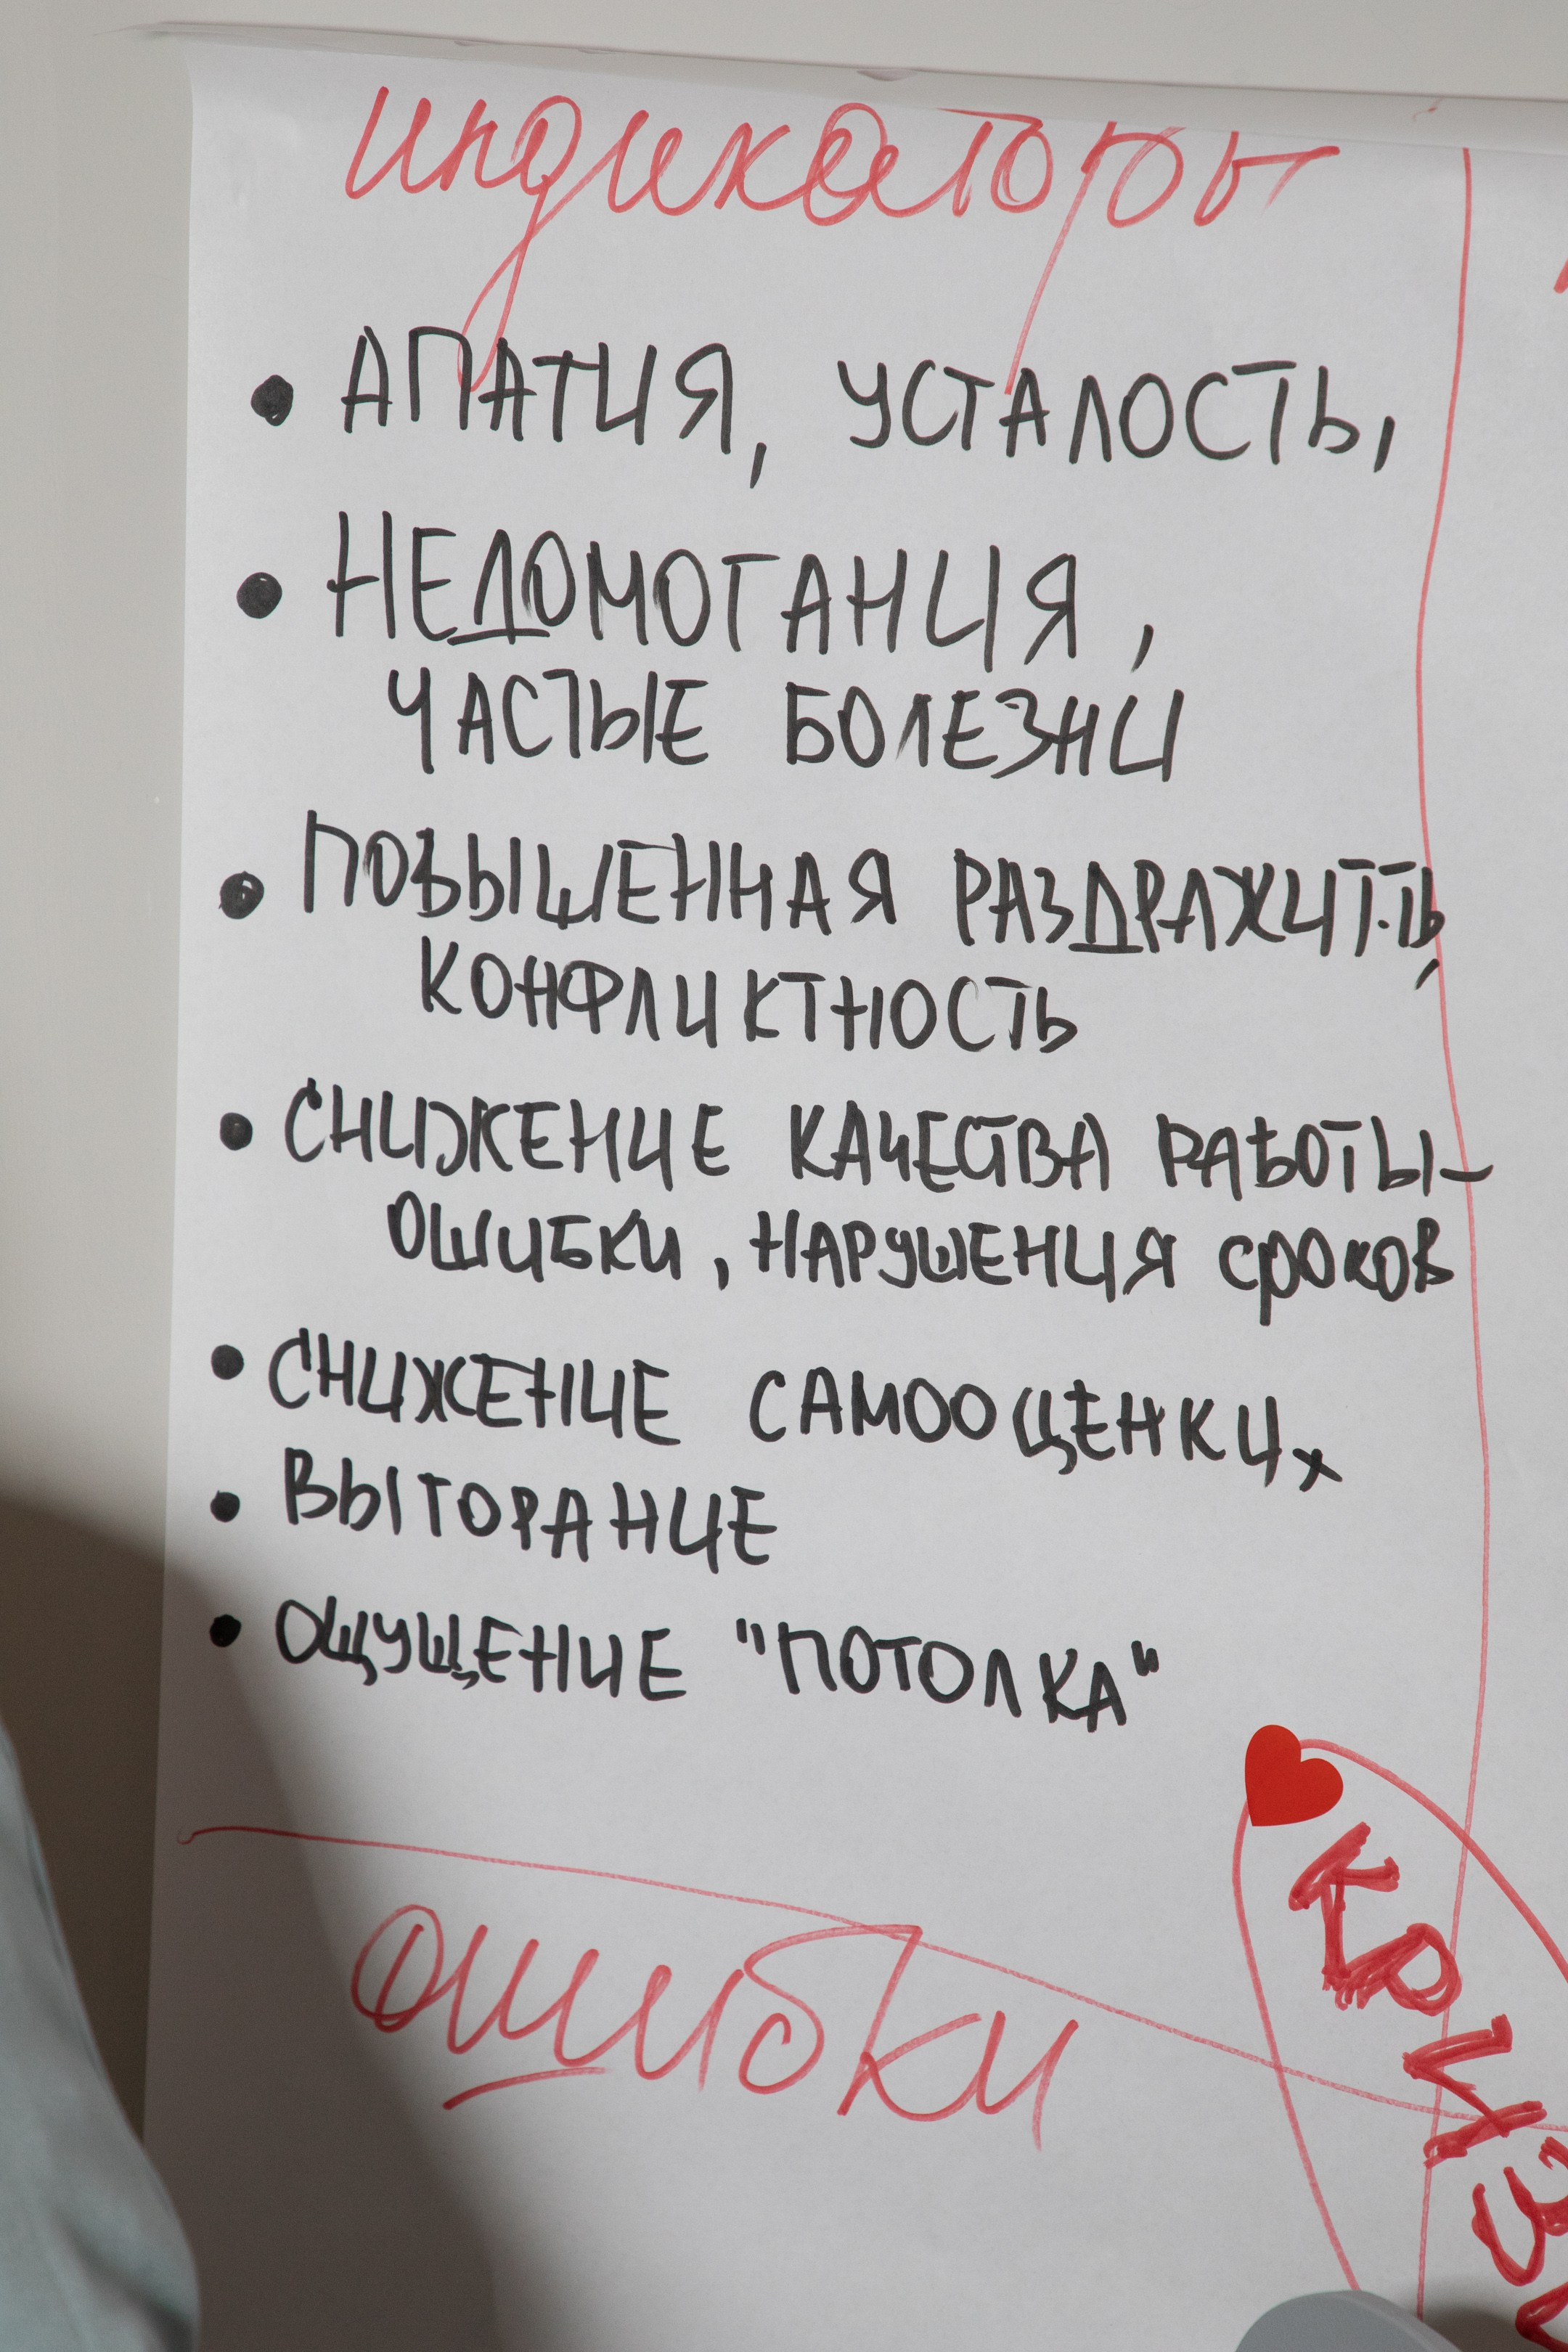 индикаторы
• АПАТИЯ, УСТАЛОСТЬ,
• НЕДОМОГАНИЯ,
ЧАСТЫЕ БОЛЕЗНИ
• ПОВЫШЕННАЯ РАЗДРАЖИТ.ТЬ,
КОНФЛИКТНОСТЬ
• СНИЖЕНИЕ КАЧЕСТВА РАБОТЫ-
ОШИБКИ, НАРУШЕНИЯ СРОКОВ
• СНИЖЕНИЕ САМООЦЕНКИ
• ВЫГОРАНИЕ
• ОЩУЩЕНИЕ "ПОТОЛКА"
ошибки
КРИЗ